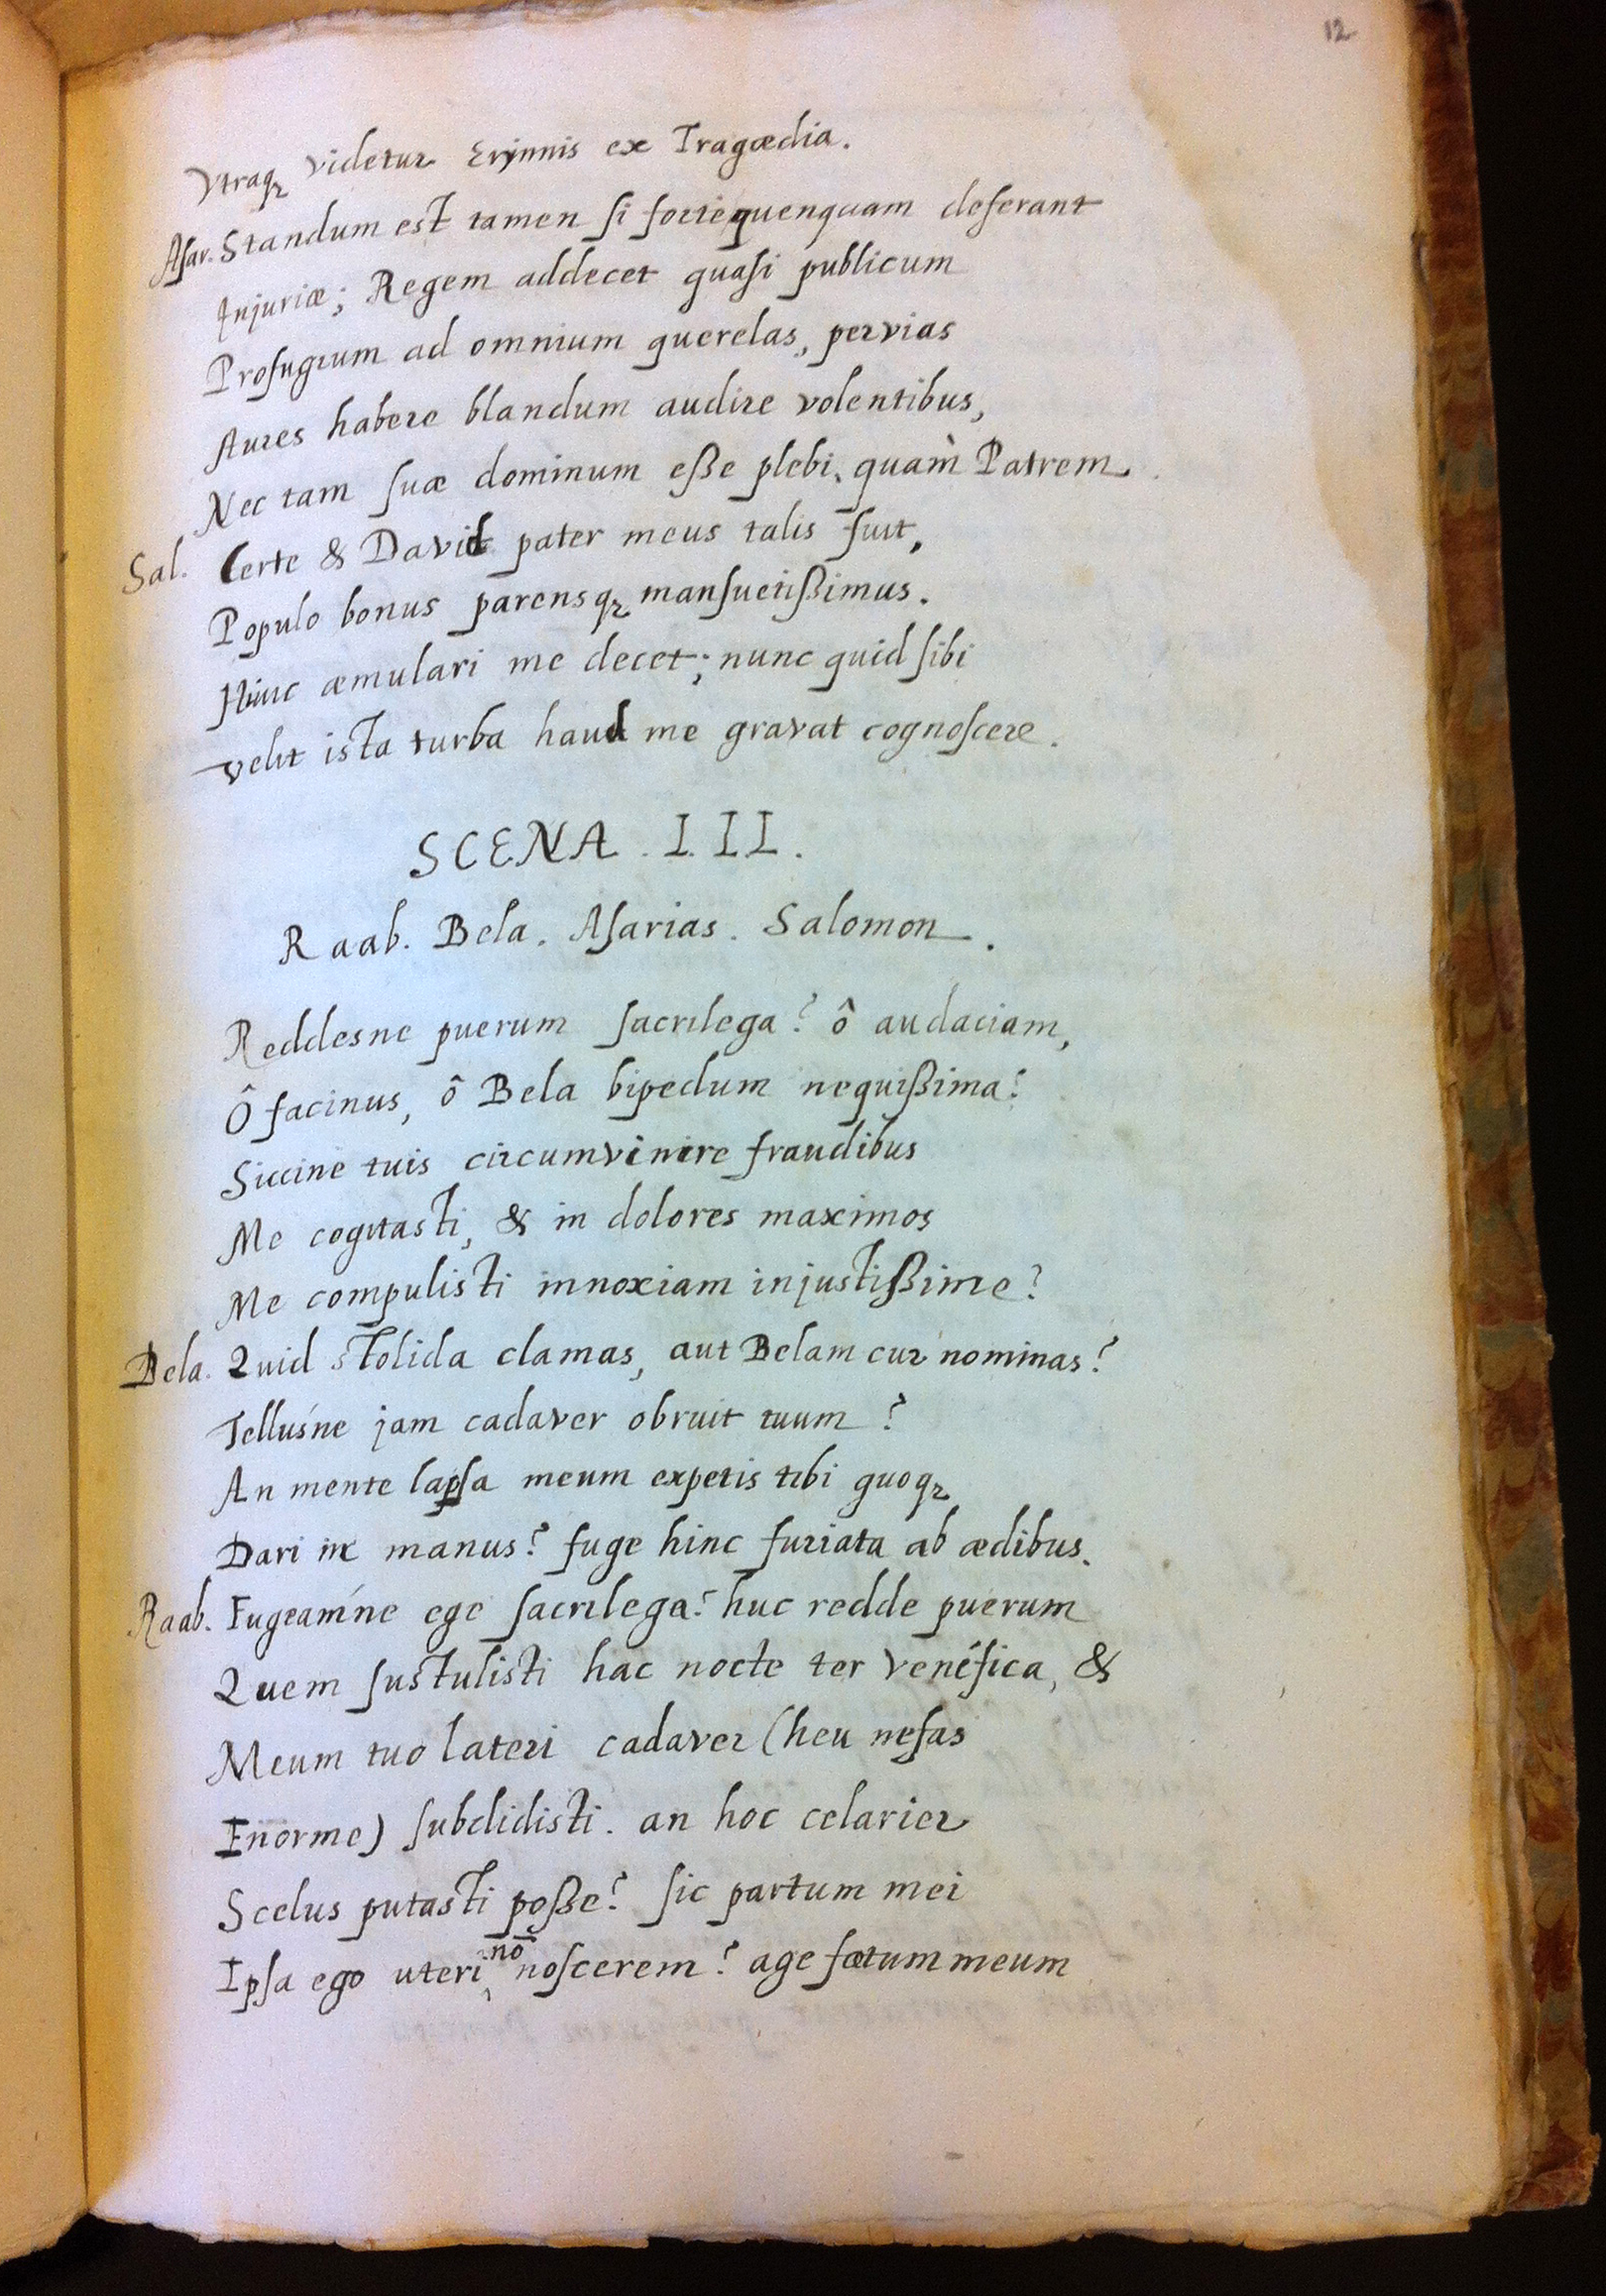 12
Vtraqꝫ videtur Erynnis ex Tragœdia.
Asar. Standum est tamen si forte quenquam deferant
Injuriæ; Regem addecet quasi publicum
Profugium ad omnium querelas, pervias
Aures habere blandum audire volentibus,
Nec tam suæ dominum eße plebi, quàm Patrem.
Sal. Certe & David pater meus talis fuit,
Populo bonus parensqꝫ mansuetißimus.
Hunc æmulari me decet; nunc quid sibi
velit ista turba haud me gravat cognoscere.
SCENA. III.
Raab. Bela. Asarias. Salomon.
Reddesne puerum sacrilega? ô audaciam,
Ô facinus, ô Bela bipedum nequißima!
Siccine tuis circumvenire fraudibus
Me cogitasti, & in dolores maximos
Me compulisti innoxiam injustißime?
Bela. Quid stolida clamas, aut Belam cur nominas?
Tellusne jam cadaver obruit tuum?
An mente lapsa meum expetis tibi quoqꝫ
Dari in manus? fuge hinc furiata ab ædibus.
Raab. Fugeamne ego sacrilega? huc redde puerum
Quem sustulisti hac nocte ter venefica, &
Meum tuo lateri cadaver (heu nefas
Enorme) subdidisti. an hoc celarier
Scelus putasti poße? sic partum mei
Ipsa ego uteri nō noscerem? age fœtum meum